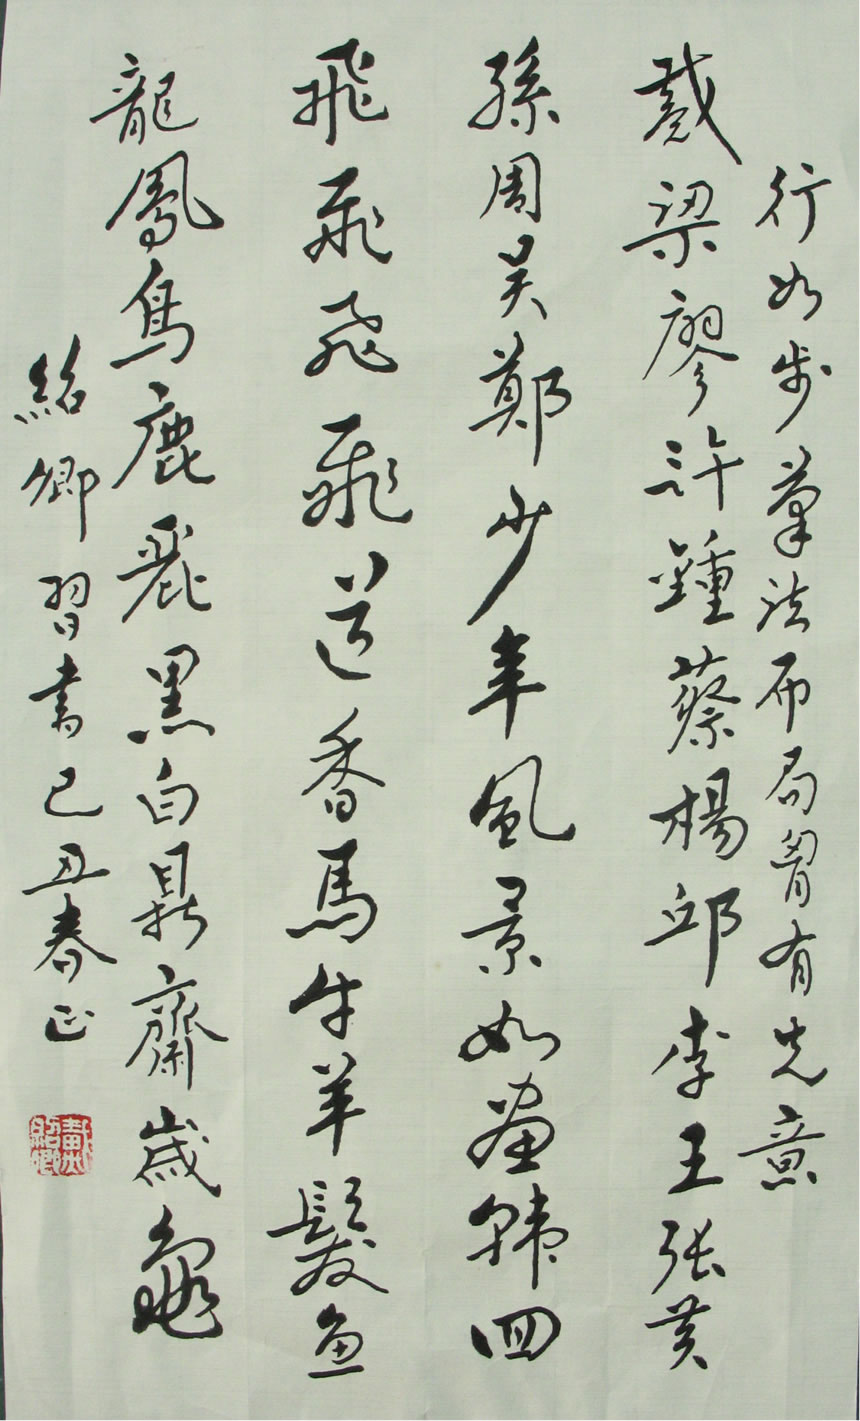 行如步筆法布局胷有先意
戴梁廖許鍾蔡楊邱李王張黃
孫周吳鄭少年風景如畫韓四
飛飛飛飛道香馬牛羊髮魚
龍鳳鳥鹿麗黑白鼎齋歲龜
紹卿習書己丑春正
戴紹卿